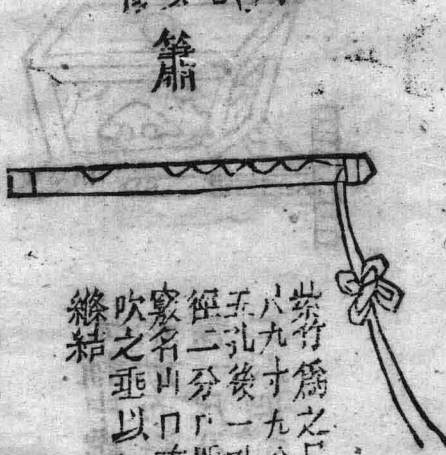 簫
紫竹爲之尺
八九寸九分
五孔後一孔
徑二分
竅名山口
吹之垂以
縧結